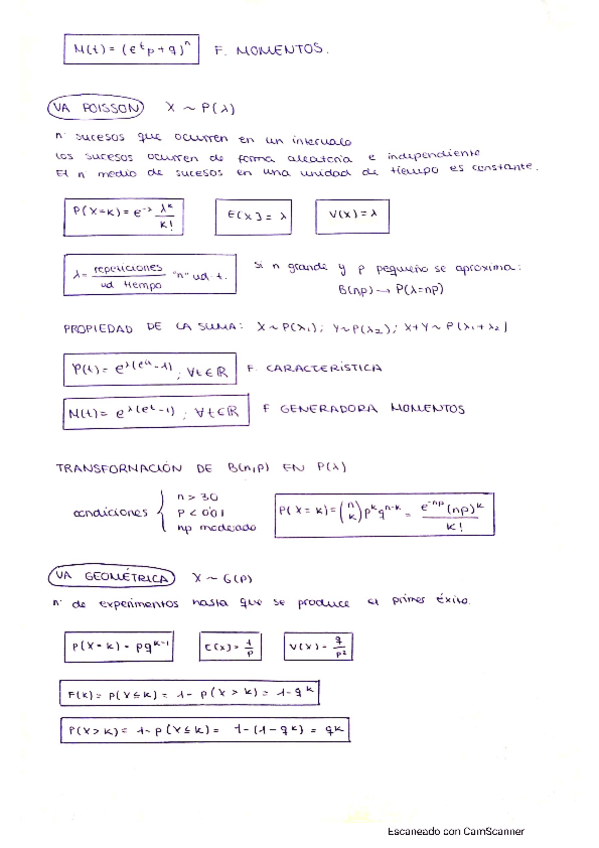 M(t) = (e^t p + q)^n F. MOMENTOS.
VA POISSON X ~ P(λ)
nº sucesos que ocurren en un intervalo
Los sucesos ocurren de forma aleatoria e independiente
El nº medio de sucesos en una unidad de tiempo es constante.
P(X=k) = e^-λ λ^k / k! E(X) = λ V(X) = λ
λ = repeticiones / ud tiempo · "n" ud. t. Si n grande y p pequeño se aproxima:
B(np) → P(λ=np)
PROPIEDAD DE LA SUMA: X~P(λ1); Y~P(λ2); X+Y~P(λ1+λ2)
φ(t) = e^λ(e^it -1); ∀t∈ℝ F. CARACTERÍSTICA
M(t) = e^λ(e^t -1); ∀t∈ℝ F GENERADORA MOMENTOS
TRANSFORMACIÓN DE B(n,p) EN P(λ)
condiciones { n > 30
p < 0'01
np moderado
P(X = k) = (n k) p^k q^n-k = e^-np (np)^k / k!
VA GEOMÉTRICA X ~ G(P)
nº de experimentos hasta que se produce el primer éxito.
P(X=k) = pq^k-1 E(X) = 1/p V(X) = q/p²
F(k) = P(X≤k) = 1 - P(X > k) = 1 - q^k
P(X>k) = 1 - P(X≤k) = 1 - (1 - q^k) = q^k
Escaneado con CamScanner